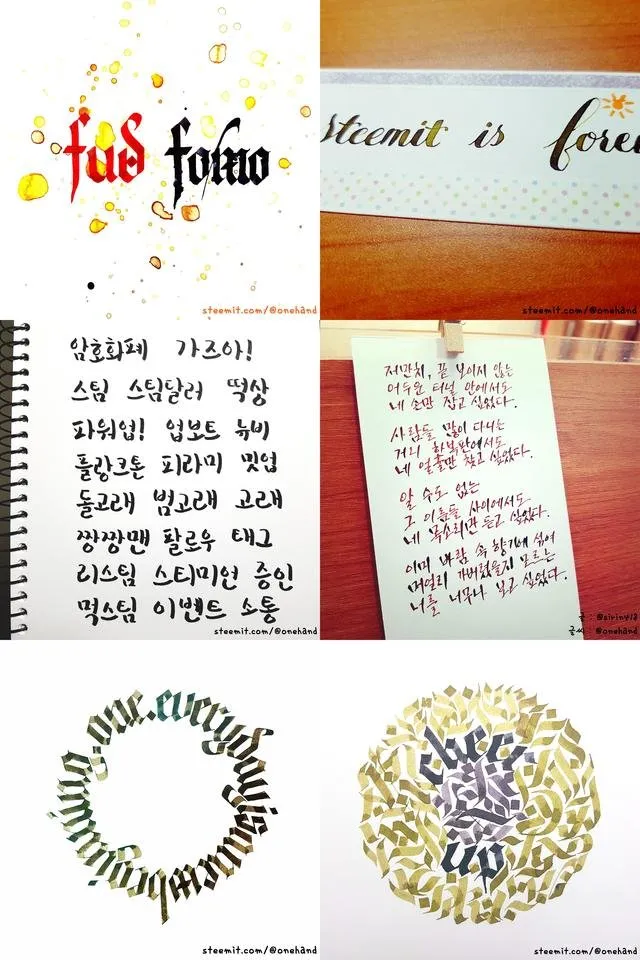 fud fomo
steemit.com/@onehand
steemit is fore
steemit.com/@onehand
암호화폐 가즈아!
스팀 스팀달러 떡상
파워업! 업보트 뉴비
플랑크톤 피라미 밋업
돌고래 범고래 고래
짱짱맨 팔로우 태그
리스팀 스티미언 증인
먹스팀 이벤트 소통
steemit.com/@onehand
저만치, 끝 보이지 않는
어두운 터널 안에서도
네 손만 잡고 싶었다.
사람들 많이 다니는
거리 한복판에서도
네 얼굴만 찾고 싶었다.
알 수도 없는
그 이름들 사이에서도
네 목소리만 듣고 싶었다.
이미 바람 속 향기에 섞여
머얼리 가버렸을지 모르는
너를 너무나 보고 싶었다.
글 :
글씨 : @onehand
everydayisanewbeginning.one.
steemit.com/@onehand
cheer
up
steemit.com/@onehand